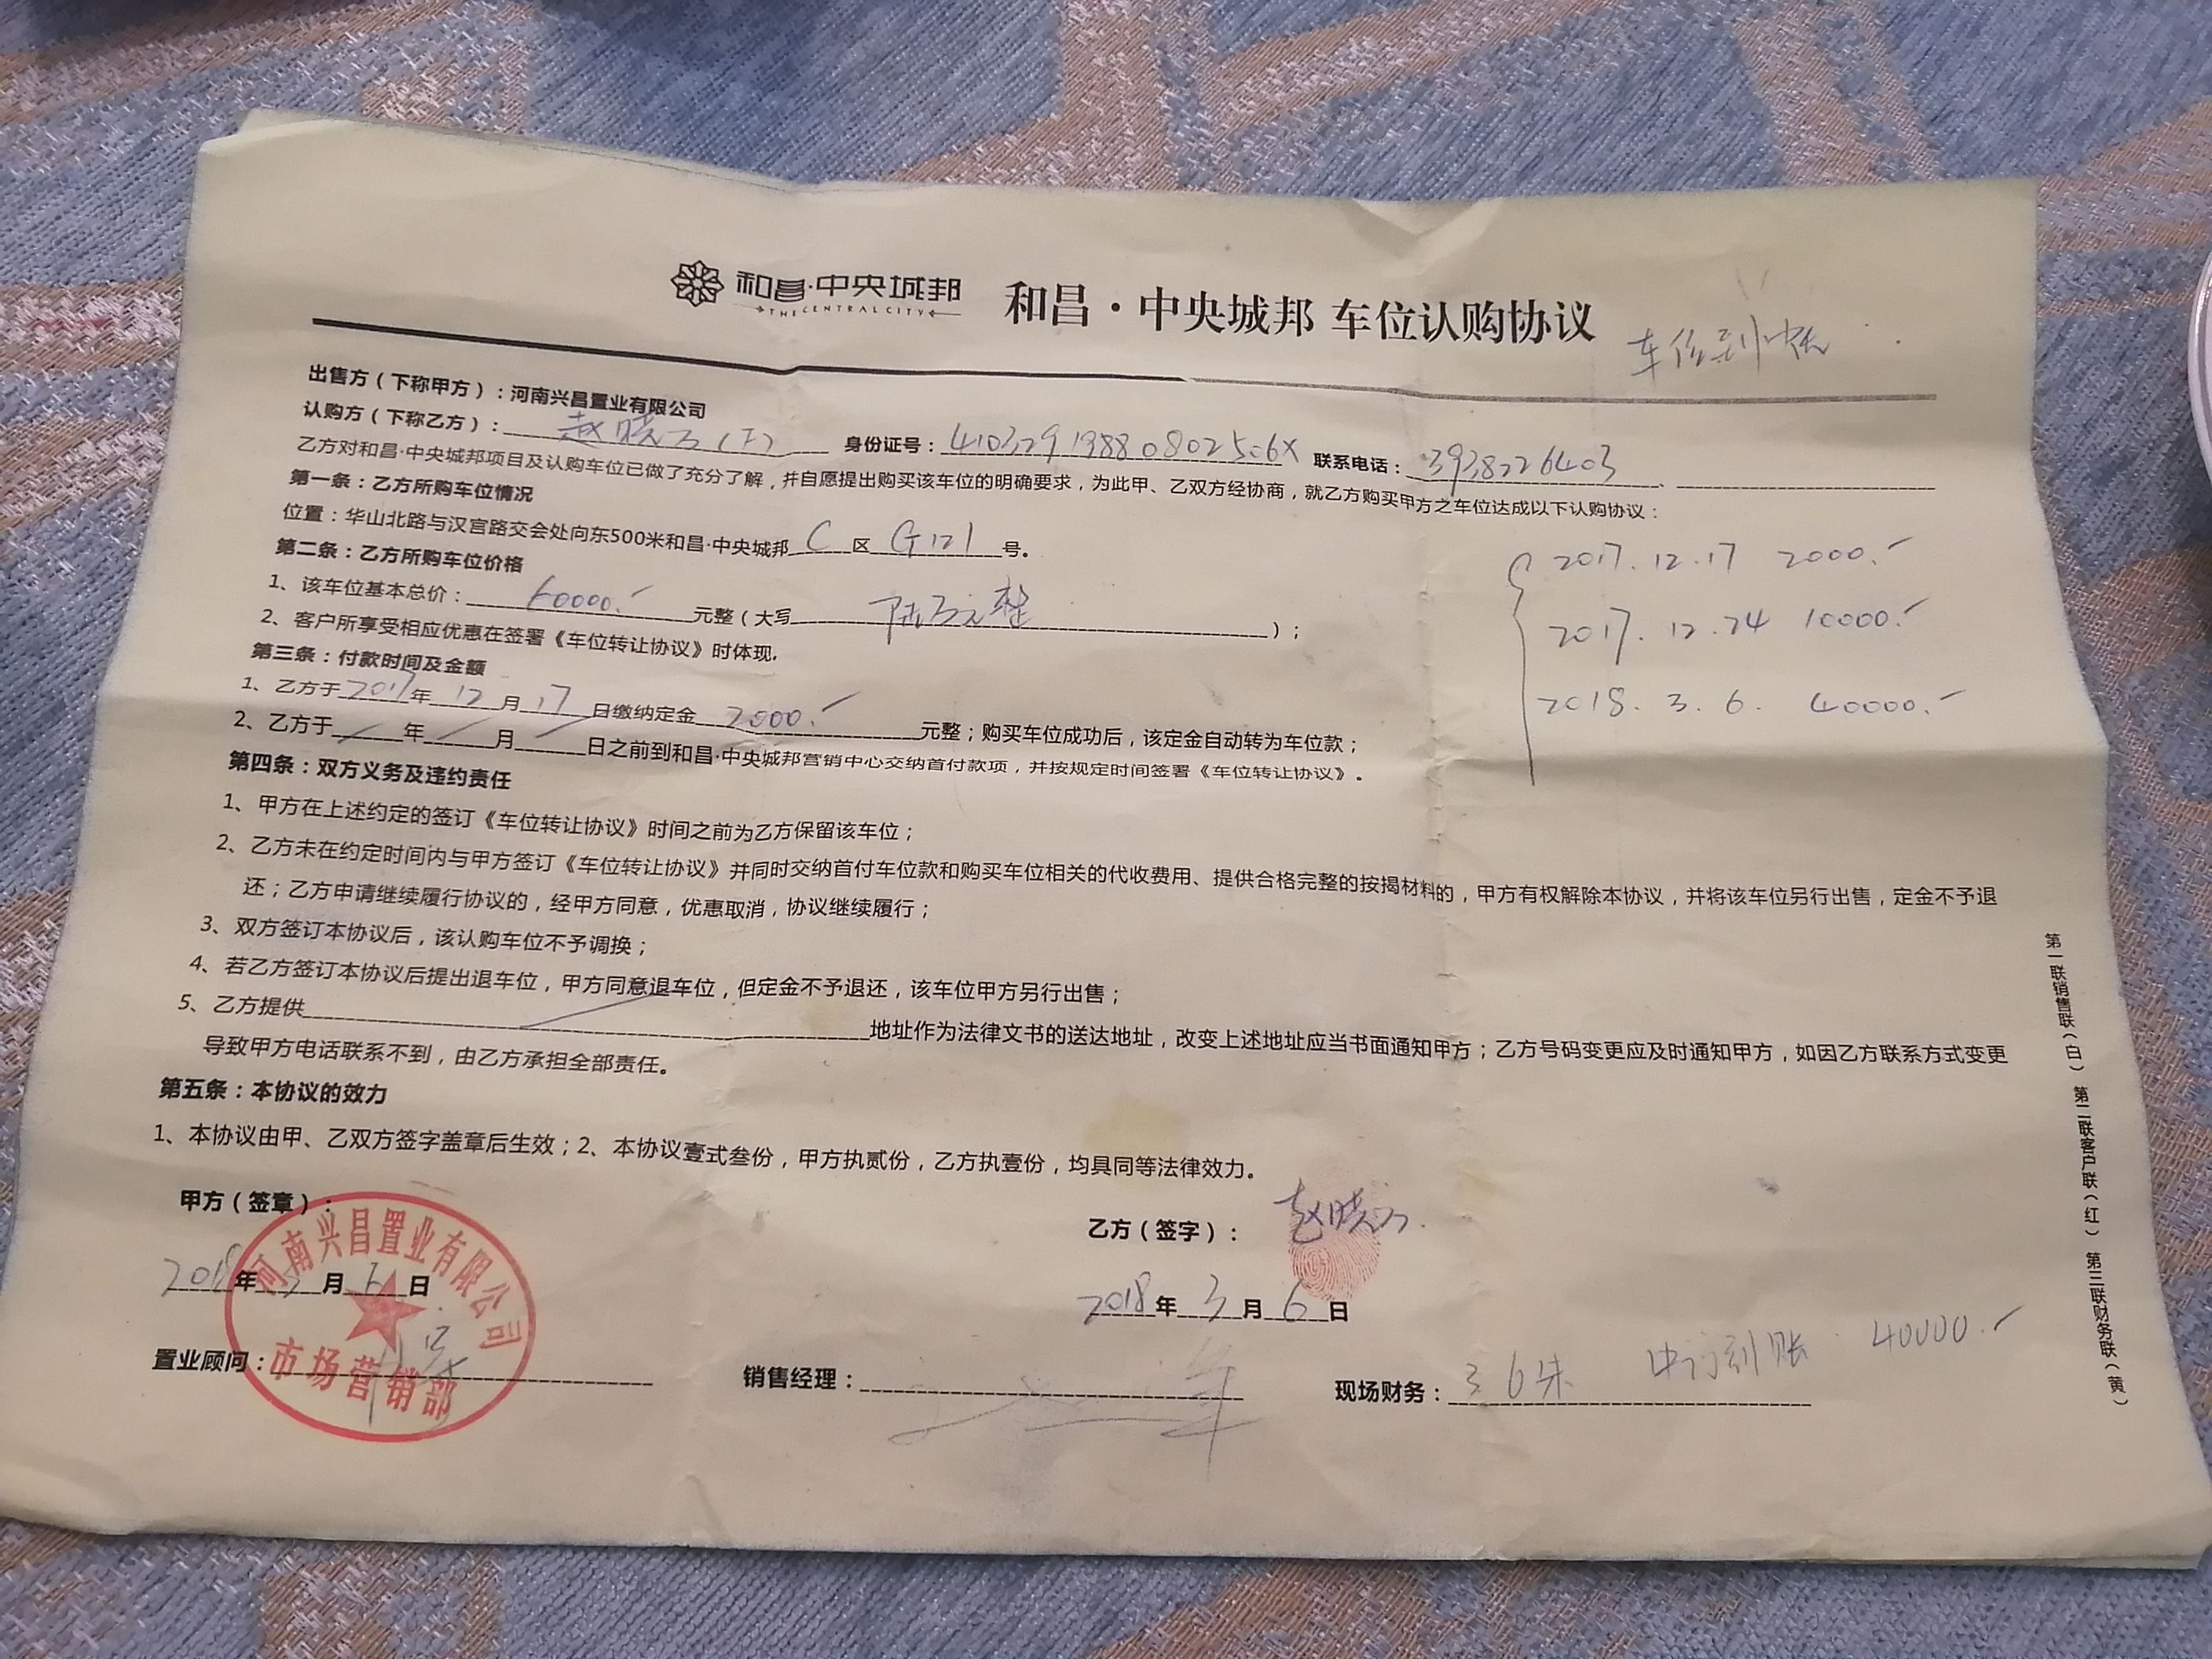 和昌·中央城邦
THE CENTRAL CITY
和昌·中央城邦 车位认购协议
车位到
出售方（下称甲方）：河南兴昌置业有限公司
认购方（下称乙方）：赵晓 身份证号：41032919880802506X 联系电话：3938226403
乙方对和昌·中央城邦项目及认购车位已做了充分了解，并自愿提出购买该车位的明确要求，为此甲、乙双方经协商，就乙方购买甲方之车位达成以下认购协议：
第一条：乙方所购车位情况
位置：华山北路与汉宫路交会处向东500米和昌·中央城邦C区G121号。
第二条：乙方所购车位价格
1、该车位基本总价：60000.- 元整（大写陆万元整）；
2、客户所享受相应优惠在签署《车位转让协议》时体现.
第三条：付款时间及金额
1、乙方于2017年12月17日缴纳定金2000.- 元整；购买车位成功后，该定金自动转为车位款；
2、乙方于/年/月/日之前到和昌·中央城邦营销中心交纳首付款项，并按规定时间签署《车位转让协议》。
2017.12.17 2000.-
2017.12.24 10000.-
2018.3.6. 40000.-
第四条：双方义务及违约责任
1、甲方在上述约定的签订《车位转让协议》时间之前为乙方保留该车位；
2、乙方未在约定时间内与甲方签订《车位转让协议》并同时交纳首付车位款和购买车位相关的代收费用、提供合格完整的按揭材料的，甲方有权解除本协议，并将该车位另行出售，定金不予退
还；乙方申请继续履行协议的，经甲方同意，优惠取消，协议继续履行；
3、双方签订本协议后，该认购车位不予调换；
4、若乙方签订本协议后提出退车位，甲方同意退车位，但定金不予退还，该车位甲方另行出售；
5、乙方提供/地址作为法律文书的送达地址，改变上述地址应当书面通知甲方；乙方号码变更应及时通知甲方，如因乙方联系方式变更
导致甲方电话联系不到，由乙方承担全部责任。
第五条：本协议的效力
1、本协议由甲、乙双方签字盖章后生效；2、本协议壹式叁份，甲方执贰份，乙方执壹份，均具同等法律效力。
甲方（签章）：
乙方（签字）：赵晓
2018年3月6日
2018年3月6日
河南兴昌置业有限公司
市场营销部
置业顾问：
销售经理：
现场财务：3.6朱 中行到账 40000.-
第一联销售联（白） 第二联客户联（红） 第三联财务联（黄）